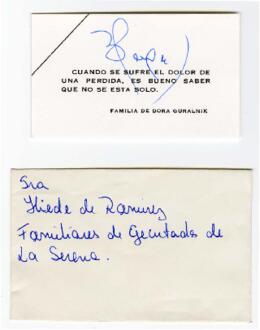 CUANDO SE SUFRE EL DOLOR DE
UNA PERDIDA, ES BUENO SABER
QUE NO SE ESTA SOLO.
FAMILIA DE DORA GURALNIK
Sra
Hilda de Ramirez
Familiares de Ejecutados de
La Serena.